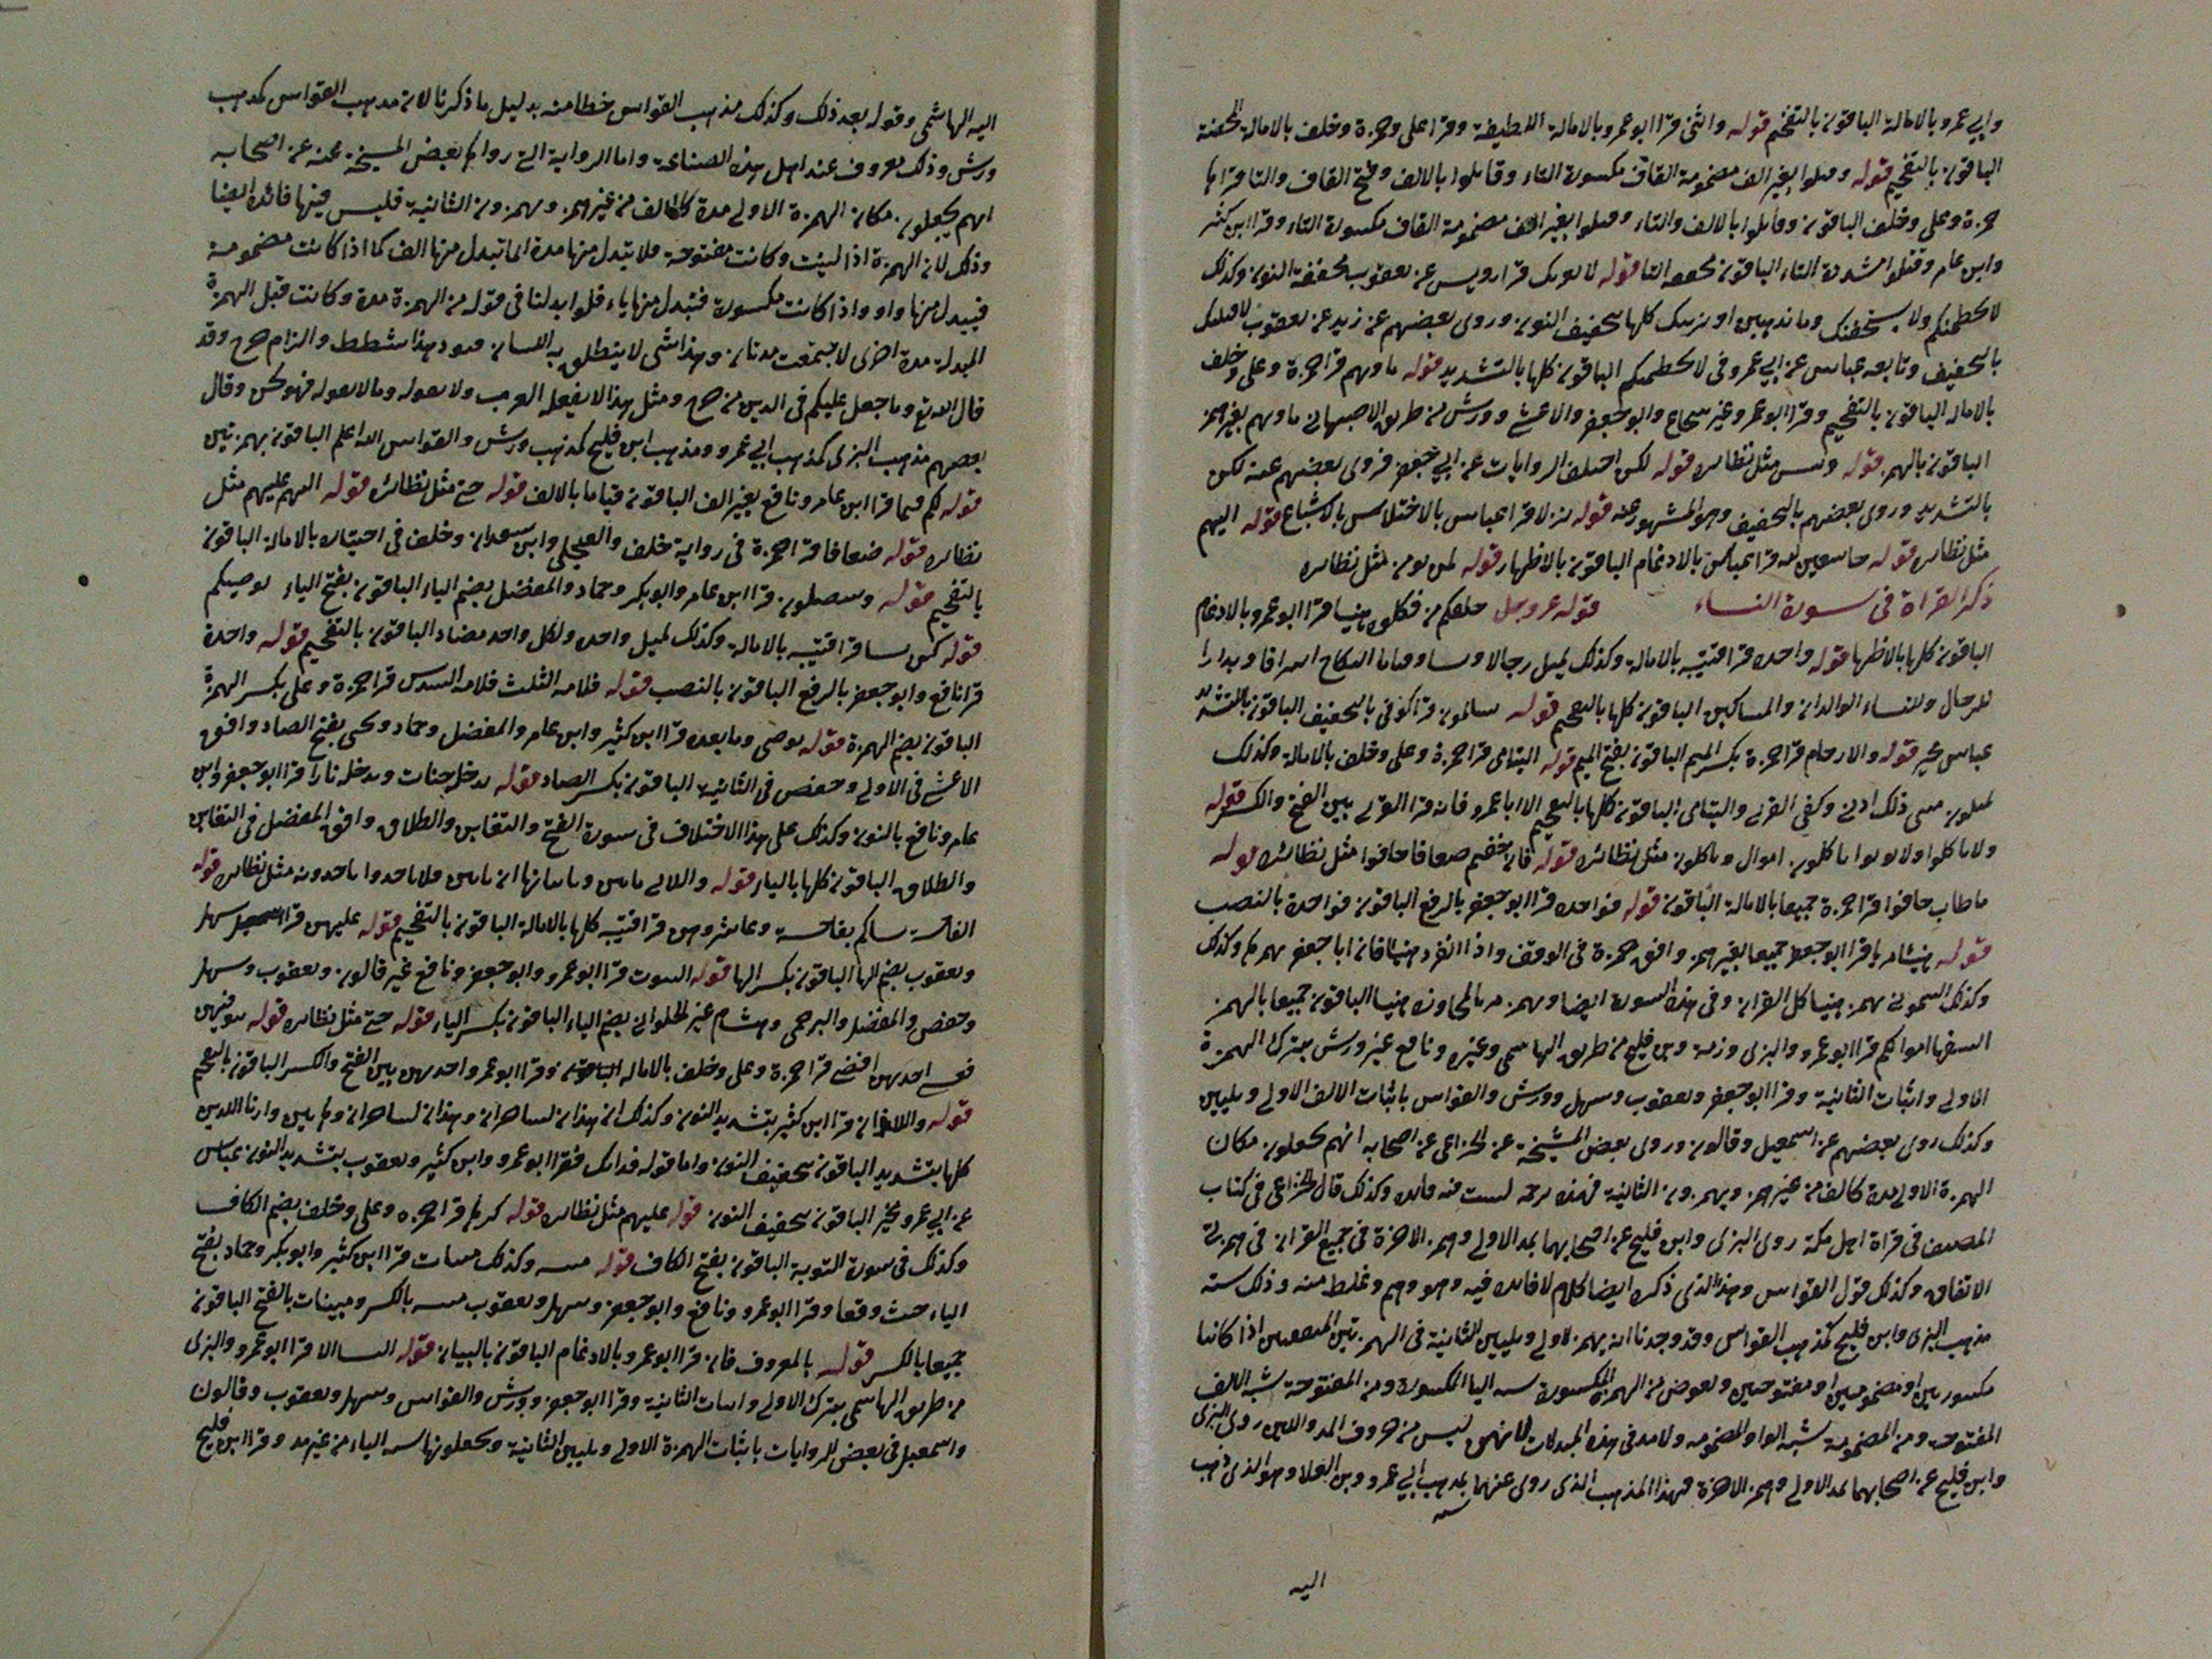 وابي عمرو بالامالة الباقون بالتفخيم قوله والثى قرا ابو عمرو بالامالة اللطيفة وقرا على وحمزة وخلف بالامالة المحضة
الباقون بالتفخيم قوله وقتلوا بغير الف مضمومة القاف مكسورة التاء وقاتلوا بالالف وفتح القاف والتا قراها
حمزة وعلى وخلف الباقون وقاتلوا بالالف والتاء وقتلوا بغير الف مضمومة القاف مكسورة التاء وقرا ابن كثير
وابن عامر وقتلوا مشددة التاء الباقون مخففه التا قوله لا يغرنك قرا رويس عن يعقوب مخففة النون وكذلك
لا يحطمنكم ولا يستخفنك وما نذهبن او نرينك كلها بتخفيف النون وروى بعضهم عن زيد عن يعقوب
بالتخفيف وتابعه عباس عن ابي عمرو في لا يحطمنكم الباقون كلها بالتشديد قوله ماويهم قرا حمزة وعلى وخلف
بالاماله الباقون بالتفخيم وقرا ابو عمرو غير شجاع وابو جعفر والاعشى وورش من طريق الاصبهاني ماويهم بغير همز
الباقون بالهمز قوله وبئس مثل نظائره قوله لكن اختلف الروايات عن ابي جعفر فروى بعضهم عنه لكن
بالتشديد وروى بعضهم بالتخفيف وهو المشهور عنه قوله نزلا قرا عباس بالاختلاس بالاشباع قوله اليهم
مثل نظائره قوله خاشعين لله قرا عباس بالادغام الباقون بالاظهار قوله لمن يومن مثل نظائره
ذكر القراة في سورة النساء قوله عز وجل خلقكم من فكلوه هنيا قرا ابو عمرو بالادغام
الباقون كلها بالاظهار قوله واحده قرا قتيبه بالامالة وكذلك لميل رجالا ونسا وفاما النكاح اسرافا وبدارا
للرجال وللنساء الوالدان والمساكين الباقون كلها بالتفخيم قوله تسالون قرا كوفي بالتخفيف الباقون بالتشديد
عباس مخير قوله والارحام قرا حمزة بكسر الميم الباقون بفتح الميم قوله اليتامى قرا حمزة وعلى وخلف بالامالة وكذلك
مثنى ذلك ادنى وكفى القربى واليتامى الباقون كلها بالتفخيم الا ابا عمرو فانه قرا القربى بين الفتح والكسر قوله
ولا تاكلوا ولا توتوا تاكلون اموال وياكلون مثل نظائره قوله فان خفتم ضعافا خافوا مثل نظائره قوله
ما طاب خافوا قرا حمزة جميعا بالامالة الباقون قوله فواحده قرا ابو جعفر بالرفع الباقون فواحدة بالنصب
قوله هنيئا مريا قرا ابو جعفر جميعا بغير همز وافق حمزة في الوقف واذا انفرد هنيئا فان ابا جعفر يهمز وكذلك
وكذلك الشموني يهمز هنيا كل القران وفي هذه السورة ايضا ويهمز الباقون جميعا بالهمز
السفها اموالكم قرا ابو عمرو والبزى وزمعة وبن فليح من طريق الهاشمى وغيره ونافع غير ورش بترك الهمزة
الاولى واثبات الثانية وقرا ابو جعفر ويعقوب وسهل وورش والقواس باثبات الالف الاولى وتليين
وكذلك روى بعضهم عن اسمعيل وقالون وروى بعض المشيخة عن الخزاعى عن اصحابه انهم يجعلون مكان
الهمزة الاولى مدة كالف من غير همز ويهمزون الثانية فهذه ترجمة ليست فيه فائدة وكذلك قال الخزاعى في كتاب
المصنف في قراة اهل مكة روى البزى وابن فليح عن اصحابهما بمد الاولى وهمز الاخرة في جميع القران في همزتى
الاتفاق وكذلك قول القواس وهذا الذى ذكره ايضا كلام لا فائده فيه وهو وهم وغلط منه وذلك سنة
مذهب البزى وابن فليح كمذهب القواس وقد وجدنا انه يهمز الاولى ويليين الثانية في الهمزتين المتفقين اذا كانتا
مكسورتين او مضمومتين او مفتوحتين ويعوض من الهمزة المكسورة شبه اليا المكسورة ومن المفتوحة شبه الالف
المفتوحه ومن المضمومة شبه الواو المضمومه ولا مد في هذه المبدلات لانهن ليس من حروف المد واللين روى البزى
وابن فليح عن اصحابهما بمد الاولى وهمز الاخرة فهذا المذهب الذى روى عنهما بمذهب ابي عمرو وبن العلا وهو الذى ذهب
اليه
اليه الهاشمى وقوله بعد ذلك وكذلك مذهب القواس خطا منه بدليل ما ذكرنا لان مذهب القواس كمذهب
ورش وذلك معروف عند اهل هذه الصناعة واما الرواية التي رواها بعض المشيخة عنه عن اصحابه
انهم يجعلون مكان الهمزة الاولى مدة كالالف من غير همز ويهمزون الثانية فليس فيها فائدة ايضا
وذلك لان الهمزة اذا لينت وكانت مفتوحة فلا يتبدل منها مدة انما تبدل منها الف كما اذا كانت مضمومة
فيبدل منها واو واذا كانت مكسورة فتبدل منها ياء فلو ابدلنا في قوله من الهمزة مدة وكانت قبل الهمزة
المبدلة مدة اخرى لاجتمعت مدتان وهذا شى لا ينطلق به اللسان فيود هذا شطط والزام حرج وقد
قال الله تع وما جعل عليكم في الدين من حرج ومثل هذا لا يفعله العرب ولا تقوله وما لا تقوله فهو لكن وقال
بعضهم مذهب البزى كمذهب ابي عمرو ومذهب ابن فليح كمذهب ورش والقواس الله اعلم الباقون بهمزتين
قوله لكم قيما قرا ابن عامر ونافع بغير الف الباقون قياما بالالف قوله حتى مثل نظائره قوله اليهم عليهم مثل
نظائره قوله ضعافا قرا حمزة في رواية خلف والعجلى وابن سعدان وخلف في اختياره بالامالة الباقون
بالتفخيم قوله وسيصلون قرا ابن عامر وابو بكر وحماد والمفضل بضم الياء الباقون بفتح الياء يوصيكم
قوله كن نسا قرا قتيبه بالامالة وكذلك لميل واحده ولكل واحد مضاد الباقون بالتفخيم قوله واحدة
قرا نافع وابو جعفر بالرفع الباقون بالنصب قوله فلامه الثلث فلامه السدس قرا حمزة وعلى بكسر الهمزة
الباقون بضم الهمزة قوله يوصى وما بعده قرا ابن كثير وابن عامر والمفضل وحماد ويحيى بفتح الصاد وافق
الاعشى في الاولى وحفص في الثانية الباقون بكسر الصاد قوله يدخله جنات ويدخله نارا قرا ابو جعفر وابن
عامر ونافع بالنون وكذلك على هذا الاختلاف في سورة الفتح والتغابن والطلاق وافق المفضل في التغابن
والطلاق الباقون كلها باليا قوله واللاتى ياتين فلا تاخذوا تاخذونه مثل نظائره قوله
الفاحشة نسائكم بفاحشة وعاشروهن قرا قتيبه كلها بالامالة الباقون بالتفخيم قوله عليهن قرا سهل
ويعقوب بضم الها الباقون بكسر الها قوله البيوت قرا ابو عمرو وابو جعفر ونافع غير قالون ويعقوب وسهل
وحفص والمفضل والبرجمى وهشام غير الحلوانى بضم الباء الباقون بكسر الباء قوله حتى مثل نظائره قوله يتوفيهن
فعسى احديهن افضى قرا حمزة وعلى وخلف بالاماله الباقون وقرا ابو عمرو احديهن بين الفتح والكسر الباقون بالتفخيم
قوله واللذان قرا ابن كثير بتشديد النون وكذلك ان هذان لساحران وهذان لساحران وهاتين وارنا اللذين
كلها بتشديد الباقون بتخفيف النون واما قوله فذانك فقرا ابو عمرو وابن كثير ويعقوب بتشديد النون عباس
عن ابي عمرو مخير الباقون بتخفيف النون قوله عليهم مثل نظائره قوله كرها قرا حمزه وعلى وخلف بضم الكاف
وكذلك في سورة التوبة الباقون بفتح الكاف قوله مبينه وكذلك مبينات قرا ابن كثير وابو بكر وحماد بفتح
الياء حيث وقعا وقرا ابو عمرو ونافع وابو جعفر وسهل ويعقوب مبينه بالكسر ومبينات بالفتح الباقون
جميعا بالكسر قوله بالمعروف فان قرا ابو عمرو بالادغام الباقون بالبيان قوله النسا الا قرا ابو عمرو والبزى
من طريق الهاشمى بترك الاولى واثبات الثانية وقرا ابو جعفر وورش والقواس وسهل ويعقوب وقالون
واسمعيل في بعض الروايات باثبات الهمزة الاولى وتليين الثانية ويجعلونها شبه الياء من غير مد وقرا ابن فليح